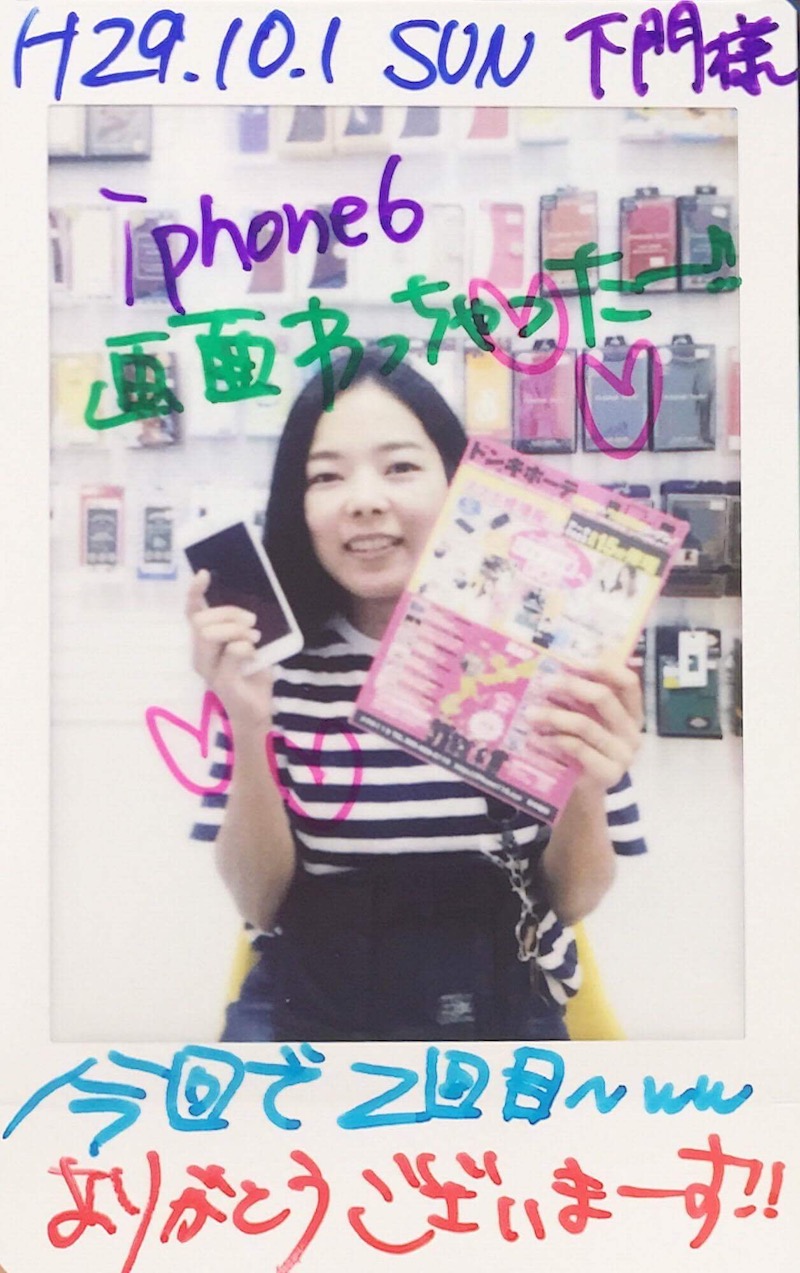 H29.10.1 SUN 下門様
iphone6
画面わっちゃったー!!
ドンキホーテ
今回で2回目～ww
ありがとうございまーす!!